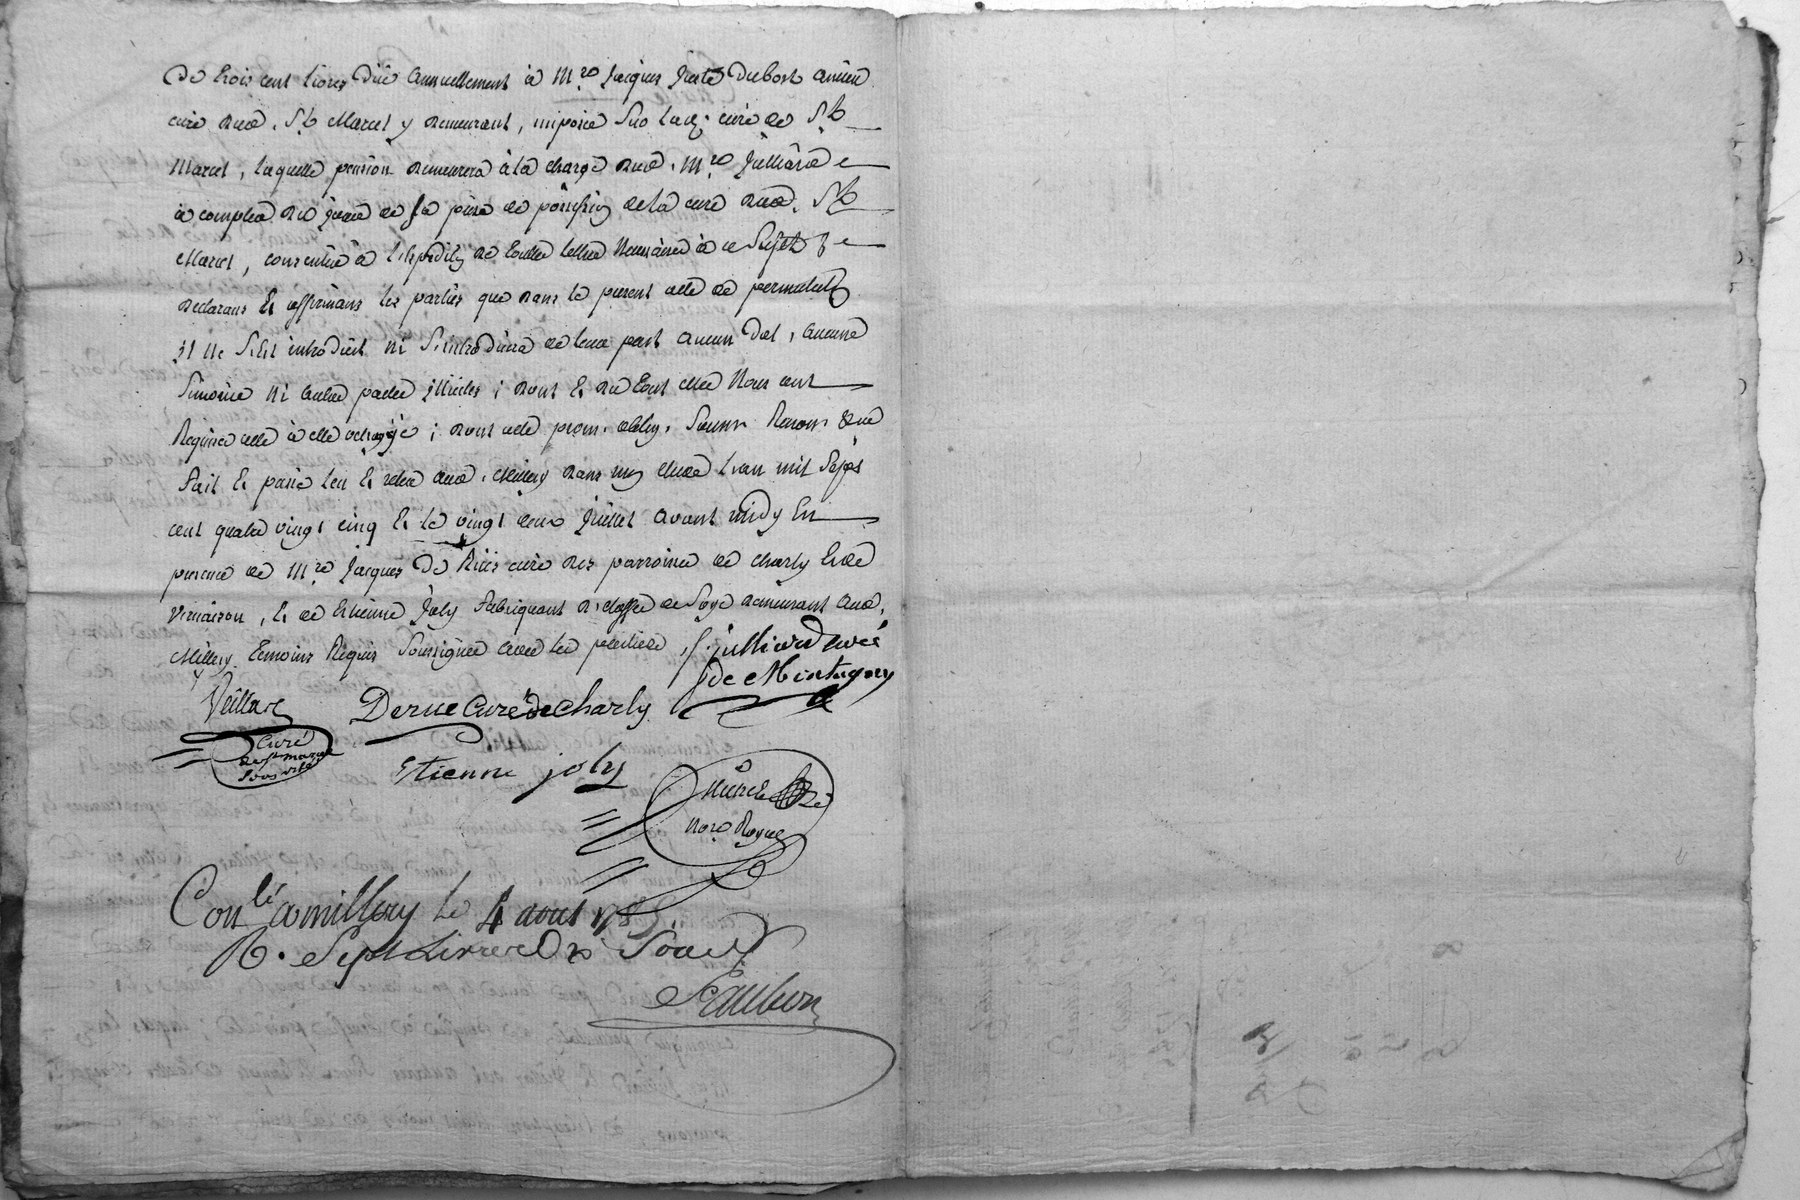 de trois cent livres düe annuellement à Mre Jacques Dubost ancien
curé dud. St Marcel y demeurant, imposée sur lad. cure de St
Marcel, laquelle pension demeurera à la charge dud. Mre Julliard
à compter du jour de sa prise de possession de la cure dud. St
Marcel, consentir à l'expedition de toutes lettres necessaires à ce sujet
declarans et affirmans les parties que dans le present acte de permutation
il ne s'est introduit ni s'introduira de leur part aucun dol, aucune
simonie ni autre pacte illicite; dont et du tout elles nous ont
requis acte à elles octroyé; dont acte prom. oblig. soum. renon. &c
fait et passé leu et releu aud. Millery dans mon etude l'an mil sept
cent quatre vingt cinq et le vingt deux juillet avant midy en
presence de Mre Jacques De Rües curé des parroisses de Charly et de
Vernaison, et de Etienne Joly fabriquant d'etoffes de soye demeurant aud.
Millery temoins requis soussignés avec les parties
Julliard curé
de Montagny
Veillard
Derue Curé de Charly
Curé
de st marcel
sous urfé
Etienne joly
Nore Royal
Conlé a millery le 4 aout 1785
R. Sept Livres Dix Sous